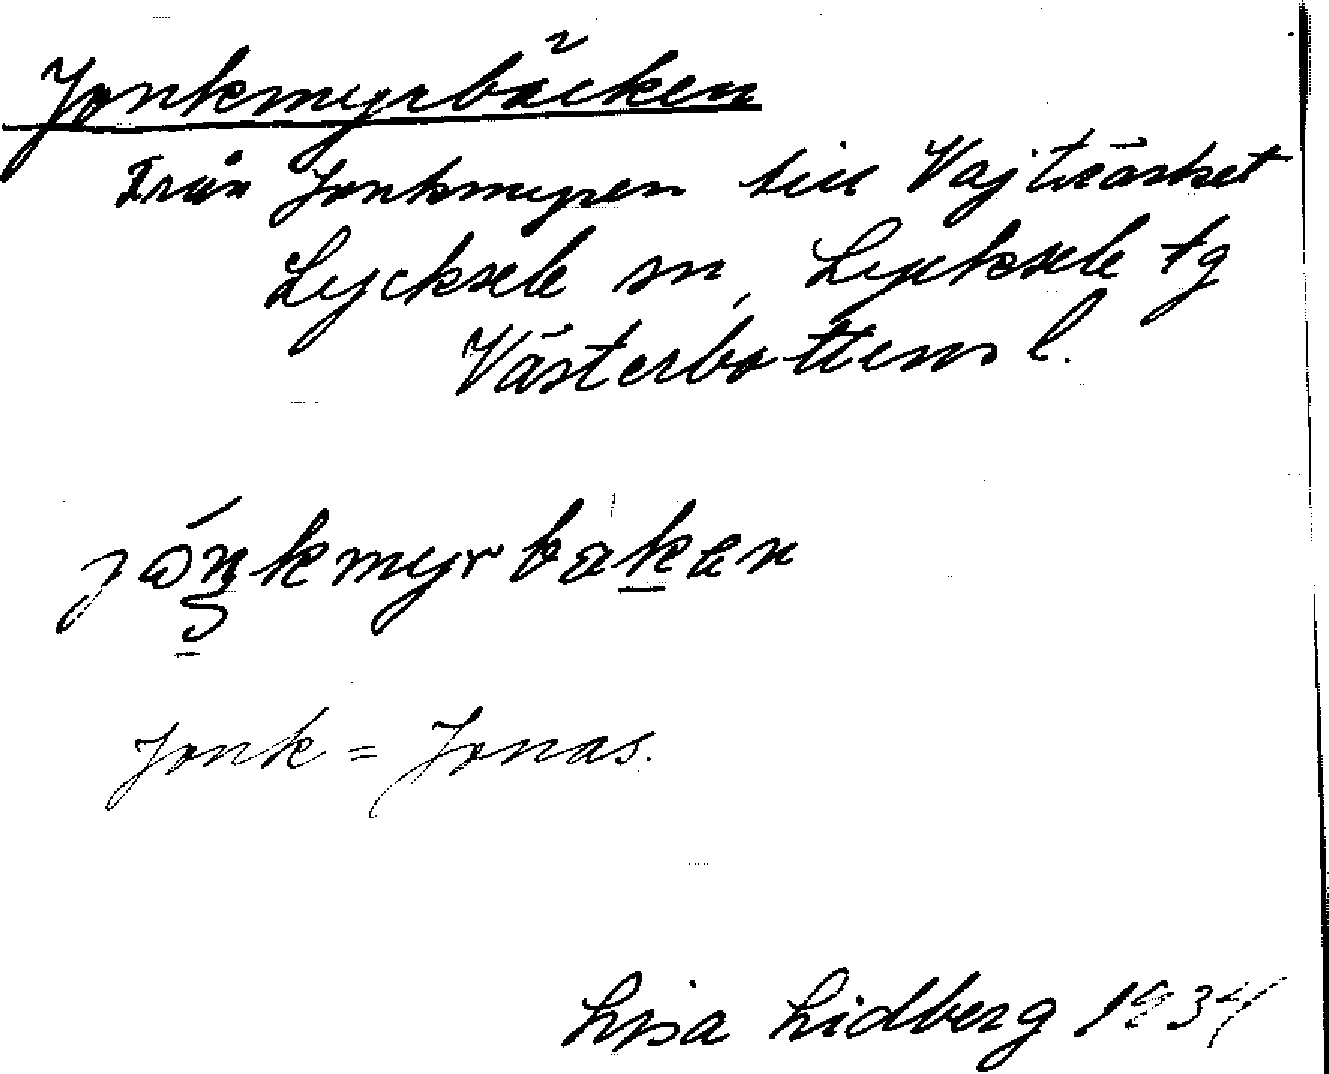 Jonkmyrbäcken
Från Jonkmyren till Vajträsket
Lycksele sn, Lycksele tg
Västerbottens l.
jóŋkmyrbakan
Jonk = Jonas.
Lisa Lidberg 1934